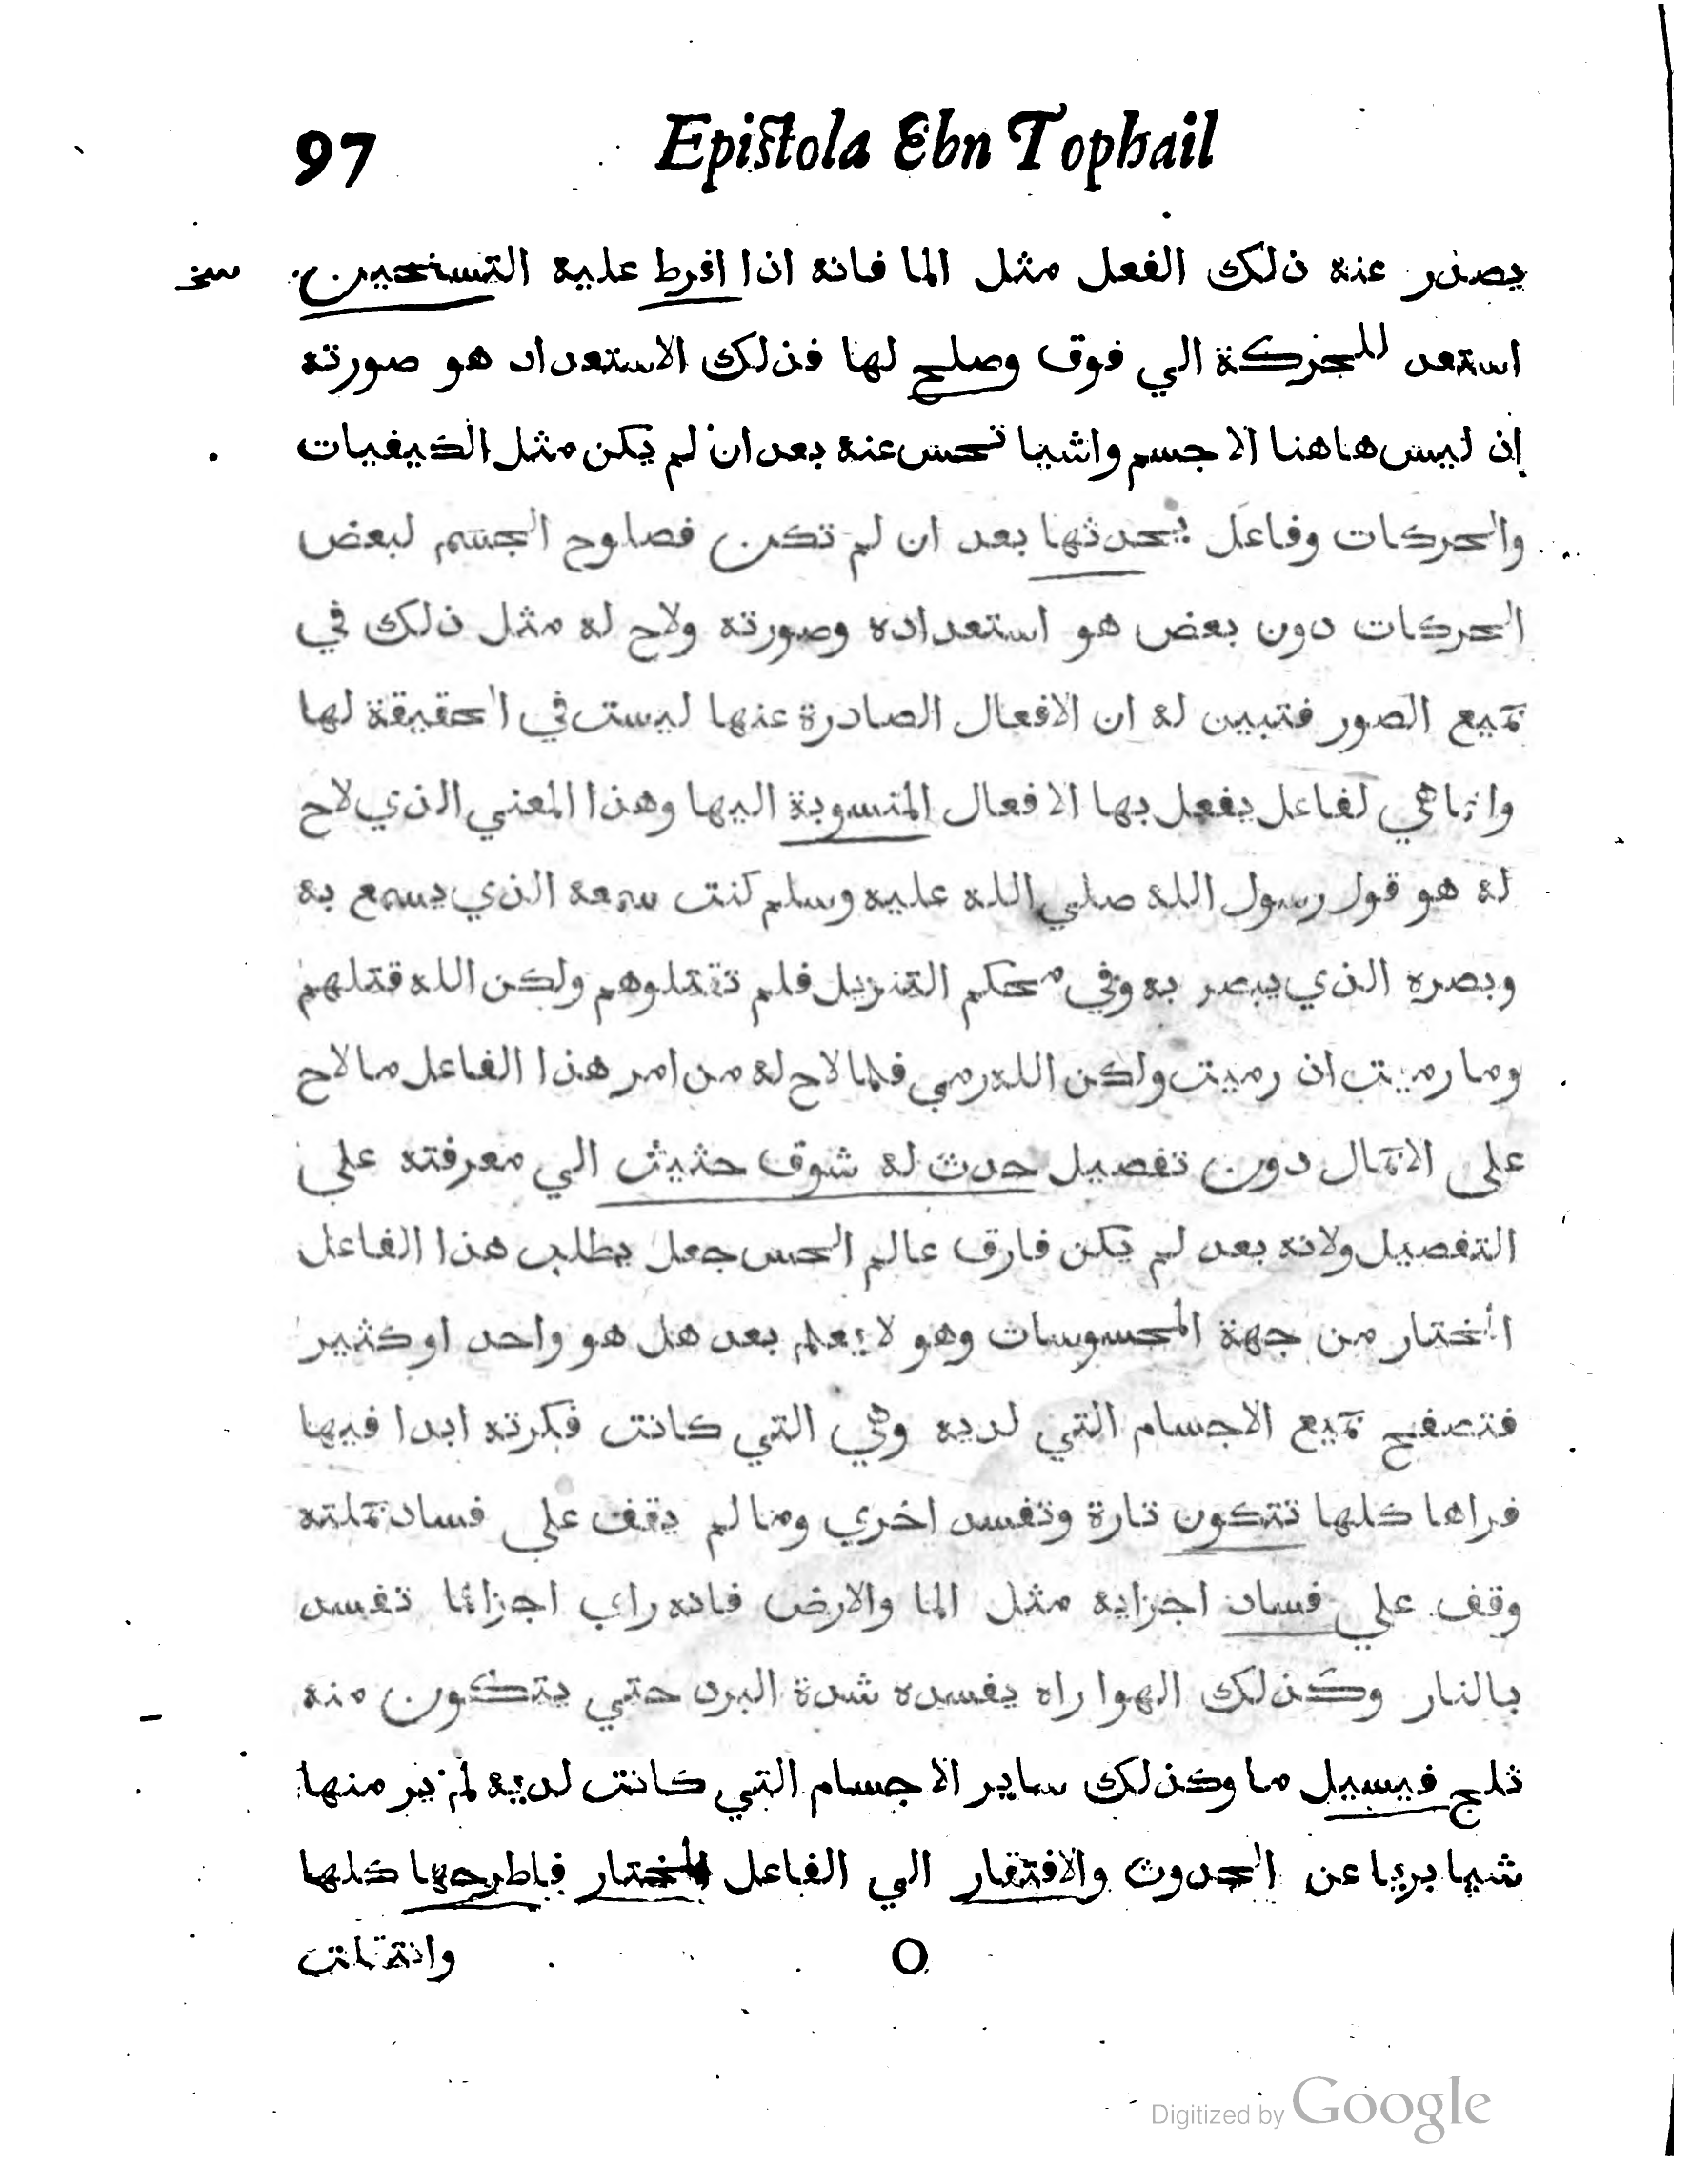 97 Epistola Ebn Tophail
يصدر عنه ذلك الفعل مثل الما فانه اذا افرط عليه التسخين سخ
استعد للحركة الي فوق وصلح لها فذلك الاستعداد هو صورته
إذ ليس هاهنا الا جسم واشيا تحس عنه بعد ان لم يكن مثل الكيفيات
والحركات وفاعل يحدثها بعد ان لم تكن فصلوح الجسم لبعض
الحركات دون بعض هو استعداده وصورته ولاح له مثل ذلك في
جميع الصور فتبين له ان الافعال الصادرة عنها ليست في الحقيقة لها
وانما هي لفاعل يفعل بها الافعال المنسوبة اليها وهذا المعني الذي لاح
له هو قول رسول الله صلي الله عليه وسلم كنت سمعه الذي يسمع به
وبصره الذي يبصر به وفي محكم التنزيل فلم تقتلوهم ولكن الله قتلهم
وما رميت اذ رميت ولكن الله رمي فلما لاح له من امر هذا الفاعل ما لاح
علي الاجمال دون تفصيل حدث له شوق حثيث الي معرفته علي
التفصيل ولانه بعد لم يكن فارق عالم الحس جعل يطلب هذا الفاعل
المختار من جهة المحسوسات وهو لا يعلم بعد هل هو واحد او كثير
فتصفح جميع الاجسام التي لديه وهي التي كانت فكرته ابدا فيها
فراها كلها تتكون تارة وتفسد اخري وما لم يقف علي فساد جملته
وقف علي فساد اجزايه مثل الما والارض فانه راي اجزائما تفسد
بالنار وكذلك الهوا راه يفسده شدة البرد حتي يتكون منه
ثلج فيسيل ما وكذلك ساير الاجسام التي كانت لديه لم ير منها
شيا بريا عن الحدوث والافتقار الي الفاعل المختار فاطرحها كلها
O وانتقلت
Digitized by Google